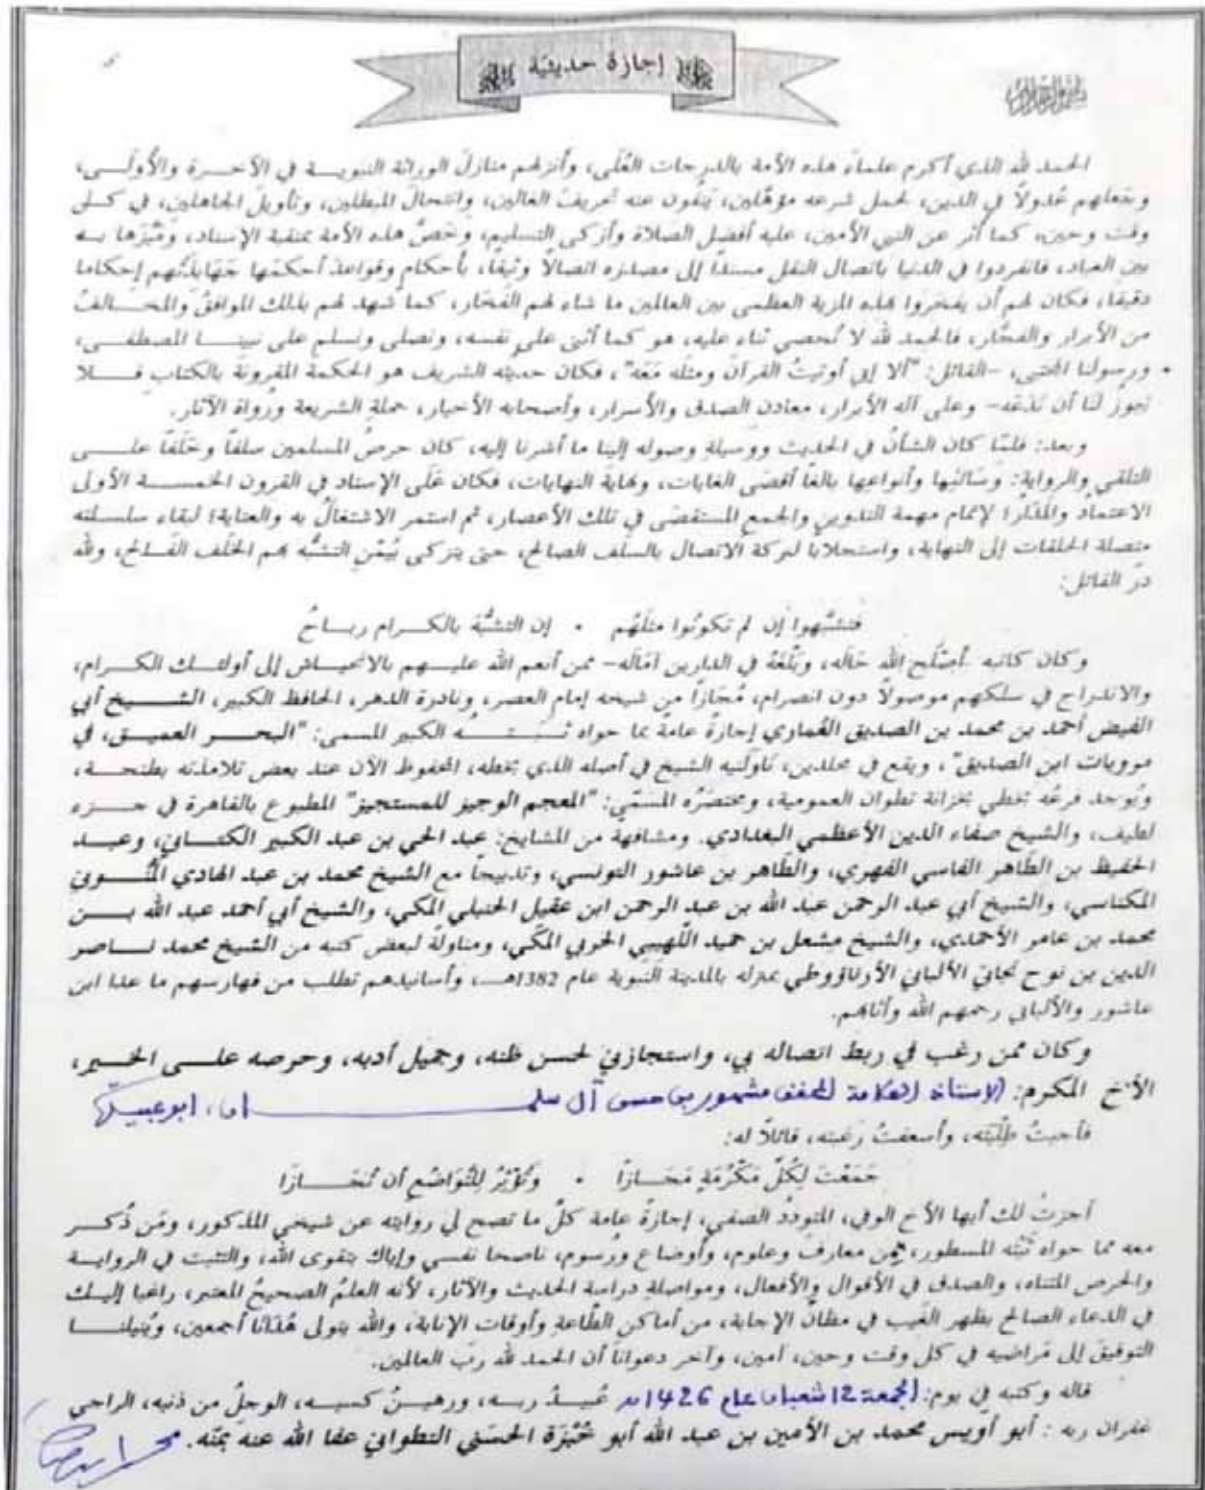 إجازة حديثية
الحمد لله الذي أكرم علماءَ هذه الأمة بالدرجات العُلَى، وأنزلهم منازلَ الوراثة النبويـــة في الآخـــرة والأُولَـــى،
وجعلهم عُدولاً في الدين، لحمل شرعه مؤهَّلين، يَنفُون عنه تحريفَ الغالين، وانتحالَ المبطلين، وتأويلَ الجاهلين، في كـــل
وقت وحين، كما أُثر عن النبي الأمين، عليه أفضل الصلاة وأزكى التسليم، وخصَّ هذه الأمة بمنقبة الإسناد، ومَيَّزها بـــه
بين العباد، فانفردوا في الدنيا باتصال النقل مسنداً إلى مصدره اتصالاً وثيقاً، بأحكامٍ وقواعدَ أحكمَها جَهَابذَتُهم إحكاما
دقيقا، فكان لهم أن يفخروا بهذه المزية العظمى بين العالمين ما شاء لهم الفَخار، كما شهد لهم بذلك الموافقُ والمخـــالفُ
من الأبرار والفجّار، فالحمد لله لا نُحصي ثناء عليه، هو كما أثنى على نفسه، ونصلي ونسلم على نبينـــا المصطفـــى،
ورسولنا المجتبى، -القائل: "ألا إني أوتيتُ القرآنَ ومثلَه مَعَه"، فكان حديثه الشريف هو الحكمة المقرونة بالكتاب فـــلا
يجوز لنا أن نَدَعَه- وعلى آله الأبرار، معادن الصدق والأسرار، وأصحابه الأخيار، حملةِ الشريعة ورُواة الآثار.
وبعد: فلمّا كان الشأنُ في الحديث ووسيلة وصوله إلينا ما أشرنا إليه، كان حرصُ المسلمين سلفاً وخَلَفاً علـــى
التلقي والرواية: وسائلِها وأنواعِها بالغاً أقصَى الغايات، ونهايةَ النهايات، فكان عَلَى الإسناد في القرون الخمســـة الأولى
الاعتمادُ والمدَار؛ لإتمام مهمة التدوين والجمع المستقصَى في تلك الأعصار، ثم استمر الاشتغالُ به والعناية؛ لبقاء سلسلته
متصلة الحلقات إلى النهاية، واستجلابا لبركة الاتصال بالسلف الصالح، حتى يتزكى بيُمْنِ التشبُّه بهم الخلَف الفَـالح، ولله
درّ القائل:
فتشبَّهوا إن لم تكونُوا مثلَهُم • إن التشبُّهَ بالكـــرام ربـــاحُ
وكان كاتبه -أصْلَح الله حَالَه، وبَلَّغَهُ في الدارين آمَالَه- ممن أنعم الله عليـــهم بالانحيـاش إلى أولئـــك الكـــرام،
والاندراج في سلكهم موصولاً دون انصرام، مُجَازاً من شيخه إمام العصر، ونادرة الدهر، الحافظ الكبير، الشـــيخ أبي
الفيض أحمد بن محمد بن الصديق الغُماري إجازةً عامة بما حواه ثَبَتُـــه الكبير المسمى: "البحـــر العميـــق، في
مرويات ابن الصديق"، ويقع في مجلدين، نَاوَلَنِيه الشيخ في أصله الذي بخطه، المحفوظ الآن عند بعض تلامذته بطنجـــة،
ويُوجد فرعُه بخطي بخزانة تطوان العمومية، ومختصَرُه المسَمّى: "المعجم الوجيز للمستجيز" المطبوع بالقاهرة في جـــزء
لطيف، والشيخ صفاء الدين الأعظمي البغدادي. ومشافهة من المشايخ: عبد الحي بن عبد الكبير الكتـــاني، وعبـــد
الحفيظ بن الطّاهر الفاسي الفهري، والطّاهر بن عاشور التونسي، وتدبيجاً مع الشيخ محمد بن عبد الهادي المَنُّـــوني
المكناسي، والشيخ أبي عبد الرحمن عبد الله بن عبد الرحمن ابن عقيل الحنبلي المكي، والشيخ أبي أحمد عبد الله بـــن
محمد بن عامر الأحمدي، والشيخ مشعل بن حميد اللّهيبي الحربي المكّي، ومناولةً لبعض كتبه من الشيخ محمد نـــاصر
الدين بن نوح نجاتي الألباني الأرناؤوطي بمنزله بالمدينة النبوية عام 1382هـــ، وأسانيدهم تطلب من فهارسهم ما عدا ابن
عاشور والألباني رحمهم الله وأثابهم.
وكان ممن رغب في ربط اتصاله بي، واستجازني لحسن ظنه، وجميل أدبه، وحرصه علـــى الخـــير،
الأخ المكرم: الاستاذ العلامة المحقق مشهور بن حسن آل سلمـــان، ابو عبيدة
فأجبتُ طِلْبَته، وأسعفتُ رَغبته، قائلاً له:
جَمَعْتَ لِكُلِّ مَكْرُمَةٍ مَجَـــازًا • وتُؤْثِرُ لِلتَّوَاضُعِ أن تُجَـــازَا
أجزتُ لك أيها الأخ الوفي، المتودِّدُ الصفي، إجازةً عامة كلَّ ما تصح لي روايته عن شيخي المذكور، ومَن ذُكـــر
معه مما حواه ثَبَتُه المسطور، مِن معارفَ وعلوم، وأوضاع ورُسوم، ناصحا نفسي وإياك بتقوى الله، والتثبت في الروايـــة
والحرص المتناه، والصدق في الأقوال والأفعال، ومواصلة دراسة الحديث والآثار، لأنه العلمُ الصحيحُ المعتبر، راغبا إليـــك
في الدعاء الصالح بظهر الغَيب في مظانّ الإجابة، من أماكن الطّاعة وأوقات الإنابة، والله يتولى هُدَانَا أجمعين، ويُنيلنـــا
التوفيقَ إلى مَراضيه في كل وقت وحين، آمين، وآخر دعوانا أن الحمد لله ربّ العالمين.
قاله وكتبه في يوم: الجمعة 12 شعبان عام 1426هـ عُبيـــدُ ربـــه، ورهيـــنُ كسبـــه، الوجلُ من ذنبه، الراجي
غفران ربه: أبو أويس محمد بن الأمين بن عبد الله أبو خُبْزَة الحسَني التطواني عفا الله عنه بمنّه.